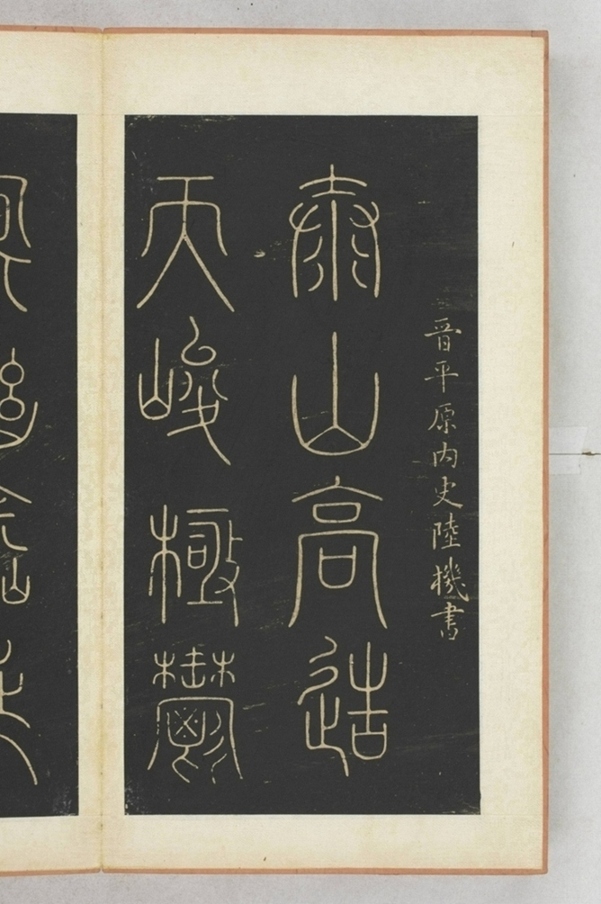 晋平原内史陸機書
泰山高造
天峻極鬱